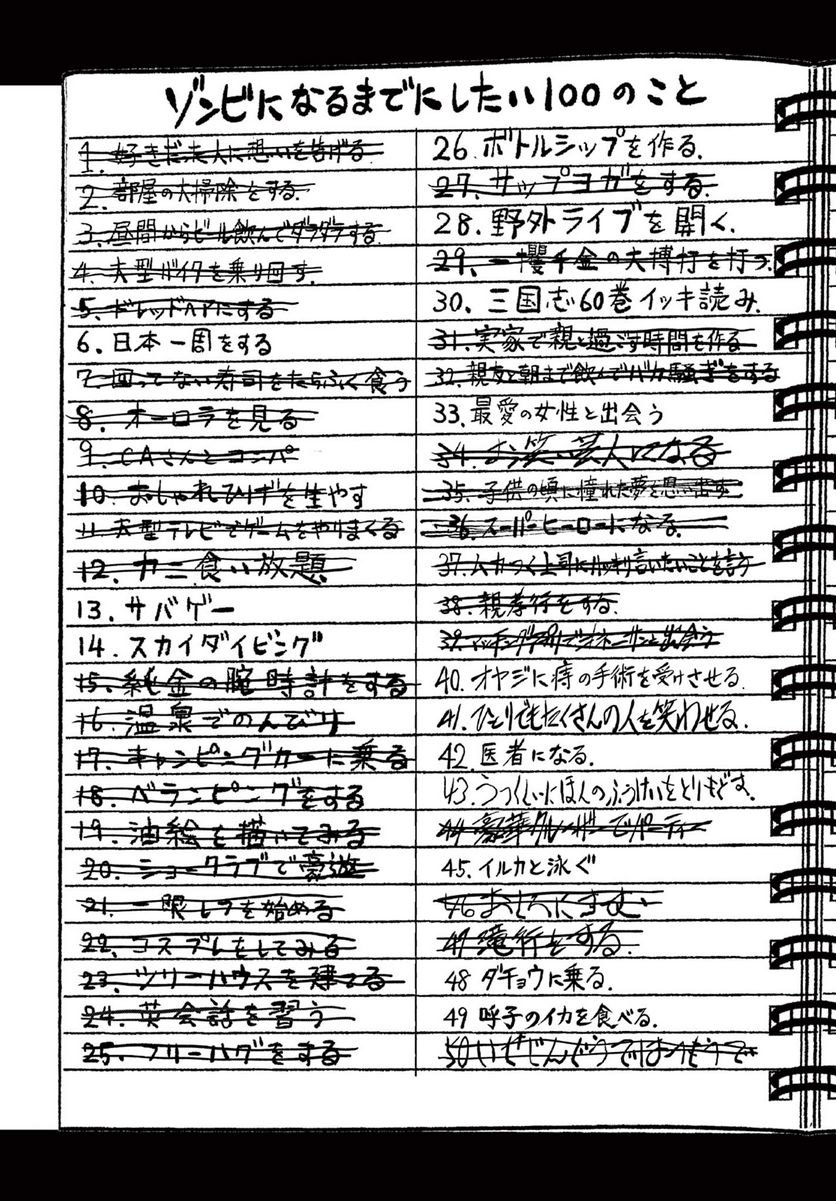 ゾンビになるまでにしたい100のこと
1. 好きだった人に想いを告げる
2. 部屋の大掃除をする.
3. 昼間からビール飲んでダラダラする
4. 大型バイクを乗り回す.
5. ドレッドヘアにする
6. 日本一周をする
7. 回ってない寿司をたらふく食う
8. オーロラを見る
9. CAさんとコンパ
10. おしゃれひげを生やす
11. 大型テレビでゲームをやりまくる
12. カニ食い放題
13. サバゲー
14. スカイダイビング
15. 純金の腕時計をする
16. 温泉でのんびり
17. キャンピングカーに乗る
18. ベランピングをする
19. 油絵を描いてみる
20. ショークラブで豪遊
21. 一眼レフを始める
22. コスプレをしてみる
23. ツリーハウスを建てる
24. 英会話を習う
25. フリーハグをする
26. ボトルシップを作る.
27. サップヨガをする.
28. 野外ライブを開く.
29. 一攫千金の大博打を打つ.
30. 三国志60巻イッキ読み.
31. 実家で親と過ごす時間を作る
32. 親友と朝まで飲んでバカ騒ぎをする
33. 最愛の女性と出会う
34. お笑い芸人になる
35. 子供の頃に憧れた夢を思い出す
36. スーパーヒーローになる.
37. ムカつく上司にハッキリ言いたいことを言う
38. 親孝行をする.
39. で と出会う
40. オヤジに痔の手術を受けさせる.
41. ひとりでもたくさんの人を笑わせる.
42. 医者になる.
43. うつくしいにほんのふうけいをとりもどす.
44 豪華クルーザーでパーティー
45. イルカと泳ぐ
46 おしろにすむ
47 滝行をする.
48 ダチョウに乗る.
49 呼子のイカを食べる.
50